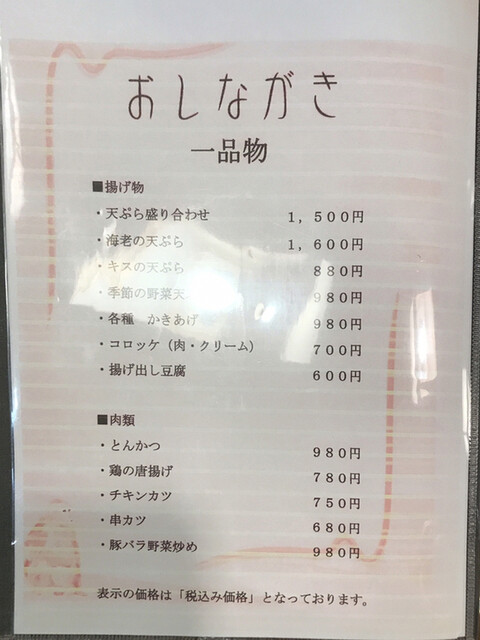 おしながき
一品物
■揚げ物
・天ぷら盛り合わせ 1,500円
・海老の天ぷら 1,600円
・キスの天ぷら 880円
・季節の野菜天 980円
・各種 かきあげ 980円
・コロッケ（肉・クリーム） 700円
・揚げ出し豆腐 600円
■肉類
・とんかつ 980円
・鶏の唐揚げ 780円
・チキンカツ 750円
・串カツ 680円
・豚バラ野菜炒め 980円
表示の価格は「税込み価格」となっております。